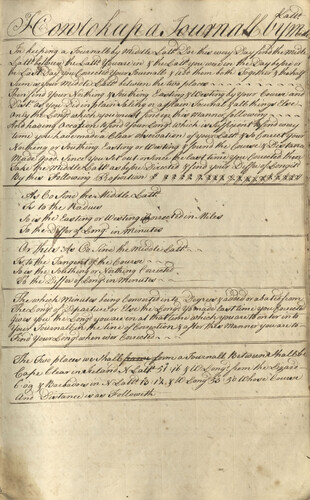 Latt
How to keep a Journall by Midd
In keeping a Journall by Middle Latt Do this every Day find the Midle
Latt between the Latt You are in & the Latt you were in the Day before or
the Last Day you Corrected your Journall & add them both Together & the half
Sum is your Middle Latt between the two places
You find Your Northing & Southing Easting & Westing by your Course and
Dist as You Did in plain Sailing or a plain Journal & all things Else
Only the Long which you must find in this Manner following
Observation of your Latt & if Correct Your
Northing or Southing Easting or Westing & found the Course & Distance
Made good Since You Set out or Since the last time You Corrected then
Take the Middle Latt as before Directed & find your Differ of Longitud
By this Following Proposition
As Co Sine the Middle Latt
Is to the Radius
So is the Easting or Westing Corrected in Miles
To the Differ of Long in Minutes
Or thus As Co Sine the Middle Latt
Is to the Tangent of the Course
So is the Southing or Northing Corrected
To the Differ of Long in Minutes
The which Minutes being Converted into Degrees & added or abated from
The Long of Departure or Else the Long You was in last time You Corrected
Gives You the Long you are in at that time which you are to Enter into
Your Journall in the line of Correction & after this Manner you are to
Find Your Long when ever Corrected
The Two places we shall form a Journall Between shall be
Cape Clear in Ireland N Latt 51 16 & Long from the Lizard
& Barbadoes in N Latt 13 12 & W Long 53 50 Whose Course
And Distance is as Followeth